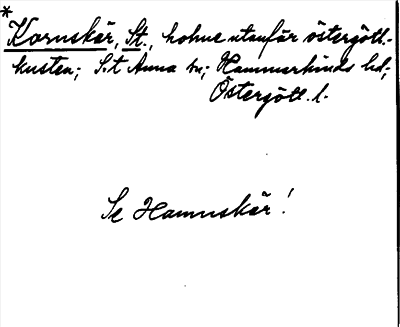 *
Kornskär, St., holme utanför östergötl.-
kusten; S:t Anna sn; Hammarkinds hd;
Östergötl. l.
Se Hamnskär!